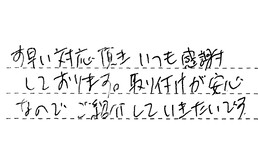 お早い対応頂き いつも感謝
しております。取り付けが安心
なので ご紹介していきたいです